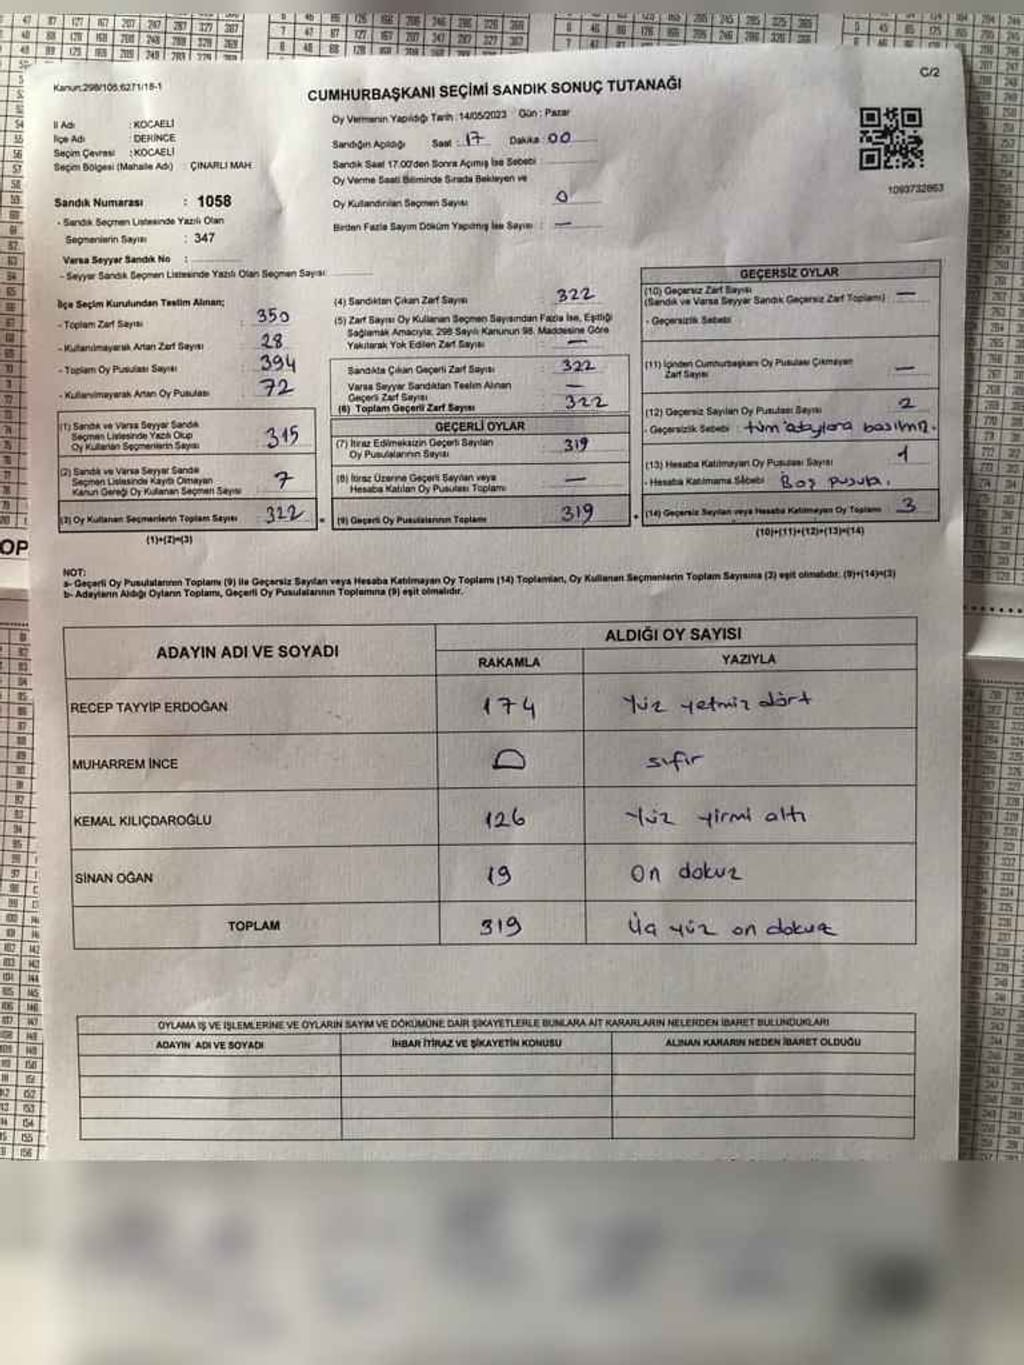 Kanun:298/105.6271/18-1
CUMHURBAŞKANI SEÇİMİ SANDIK SONUÇ TUTANAĞI
C/2
İl Adı : KOCAELİ
İlçe Adı : DERİNCE
Seçim Çevresi : KOCAELİ
Seçim Bölgesi (Mahalle Adı) : ÇINARLI MAH
Sandık Numarası : 1058
- Sandık Seçmen Listesinde Yazılı Olan
Seçmenlerin Sayısı : 347
Varsa Seyyar Sandık No :
- Seyyar Sandık Seçmen Listesinde Yazılı Olan Seçmen Sayısı
Oy Vermenin Yapıldığı Tarih :14/05/2023 Gün : Pazar
Sandığın Açıldığı Saat : 17 Dakika : 00
Sandık Saat 17.00'den Sonra Açılmış İse Sebebi
Oy Verme Saati Bitiminde Sırada Bekleyen ve
Oy Kullandırılan Seçmen Sayısı 0
Birden Fazla Sayım Döküm Yapılmış İse Sayısı : —
1093732863
İlçe Seçim Kurulundan Teslim Alınan;
- Toplam Zarf Sayısı : 350
- Kullanılmayarak Artan Zarf Sayısı : 28
- Toplam Oy Pusulası Sayısı : 394
- Kullanılmayarak Artan Oy Pusulası : 72
(1) Sandık ve Varsa Seyyar Sandık
Seçmen Listesinde Yazılı Olup
Oy Kullanan Seçmenlerin Sayısı 315
(2) Sandık ve Varsa Seyyar Sandık
Seçmen Listesinde Kayıtlı Olmayan
Kanun Gereği Oy Kullanan Seçmen Sayısı 7
(3) Oy Kullanan Seçmenlerin Toplam Sayısı 322
(1)+(2)=(3)
(4) Sandıktan Çıkan Zarf Sayısı : 322
(5) Zarf Sayısı Oy Kullanan Seçmen Sayısından Fazla İse, Eşitliği
Sağlamak Amacıyla; 298 Sayılı Kanunun 98. Maddesine Göre
Yakılarak Yok Edilen Zarf Sayısı : —
Sandıkta Çıkan Geçerli Zarf Sayısı : 322
Varsa Seyyar Sandıktan Teslim Alınan
Geçerli Zarf Sayısı : —
(6) Toplam Geçerli Zarf Sayısı : 322
GEÇERLİ OYLAR
(7) İtiraz Edilmeksizin Geçerli Sayılan
Oy Pusulalarının Sayısı : 319
(8) İtiraz Üzerine Geçerli Sayılan veya
Hesaba Katılan Oy Pusulası Toplamı : —
(9) Geçerli Oy Pusulalarının Toplamı : 319
GEÇERSİZ OYLAR
(10) Geçersiz Zarf Sayısı
(Sandık ve Varsa Seyyar Sandık Geçersiz Zarf Toplamı) : —
- Geçersizlik Sebebi :
(11) İçinden Cumhurbaşkanı Oy Pusulası Çıkmayan
Zarf Sayısı : —
(12) Geçersiz Sayılan Oy Pusulası Sayısı : 2
- Geçersizlik Sebebi : tüm adaylara basılmış.
(13) Hesaba Katılmayan Oy Pusulası Sayısı : 1
- Hesaba Katılmama Sebebi : Boş pusula.
(14) Geçersiz Sayılan veya Hesaba Katılmayan Oy Toplamı : 3
(10)+(11)+(12)+(13)=(14)
NOT:
a- Geçerli Oy Pusulalarının Toplamı (9) ile Geçersiz Sayılan veya Hesaba Katılmayan Oy Toplamı (14) Toplamları, Oy Kullanan Seçmenlerin Toplam Sayısına (3) eşit olmalıdır. (9)+(14)=(3)
b- Adayların Aldığı Oyların Toplamı, Geçerli Oy Pusulalarının Toplamına (9) eşit olmalıdır.
ADAYIN ADI VE SOYADI
ALDIĞI OY SAYISI
RAKAMLA YAZIYLA
RECEP TAYYİP ERDOĞAN 174 Yüz yetmiş dört
MUHARREM İNCE 0 sıfır
KEMAL KILIÇDAROĞLU 126 Yüz yirmi altı
SİNAN OĞAN 19 on dokuz
TOPLAM 319 Üç yüz on dokuz
OYLAMA İŞ VE İŞLEMLERİNE VE OYLARIN SAYIM VE DÖKÜMÜNE DAİR ŞİKAYETLERLE BUNLARA AİT KARARLARIN NELERDEN İBARET BULUNDUKLARI
ADAYIN ADI VE SOYADI İHBAR İTİRAZ VE ŞİKAYETİN KONUSU ALINAN KARARIN NEDEN İBARET OLDUĞU